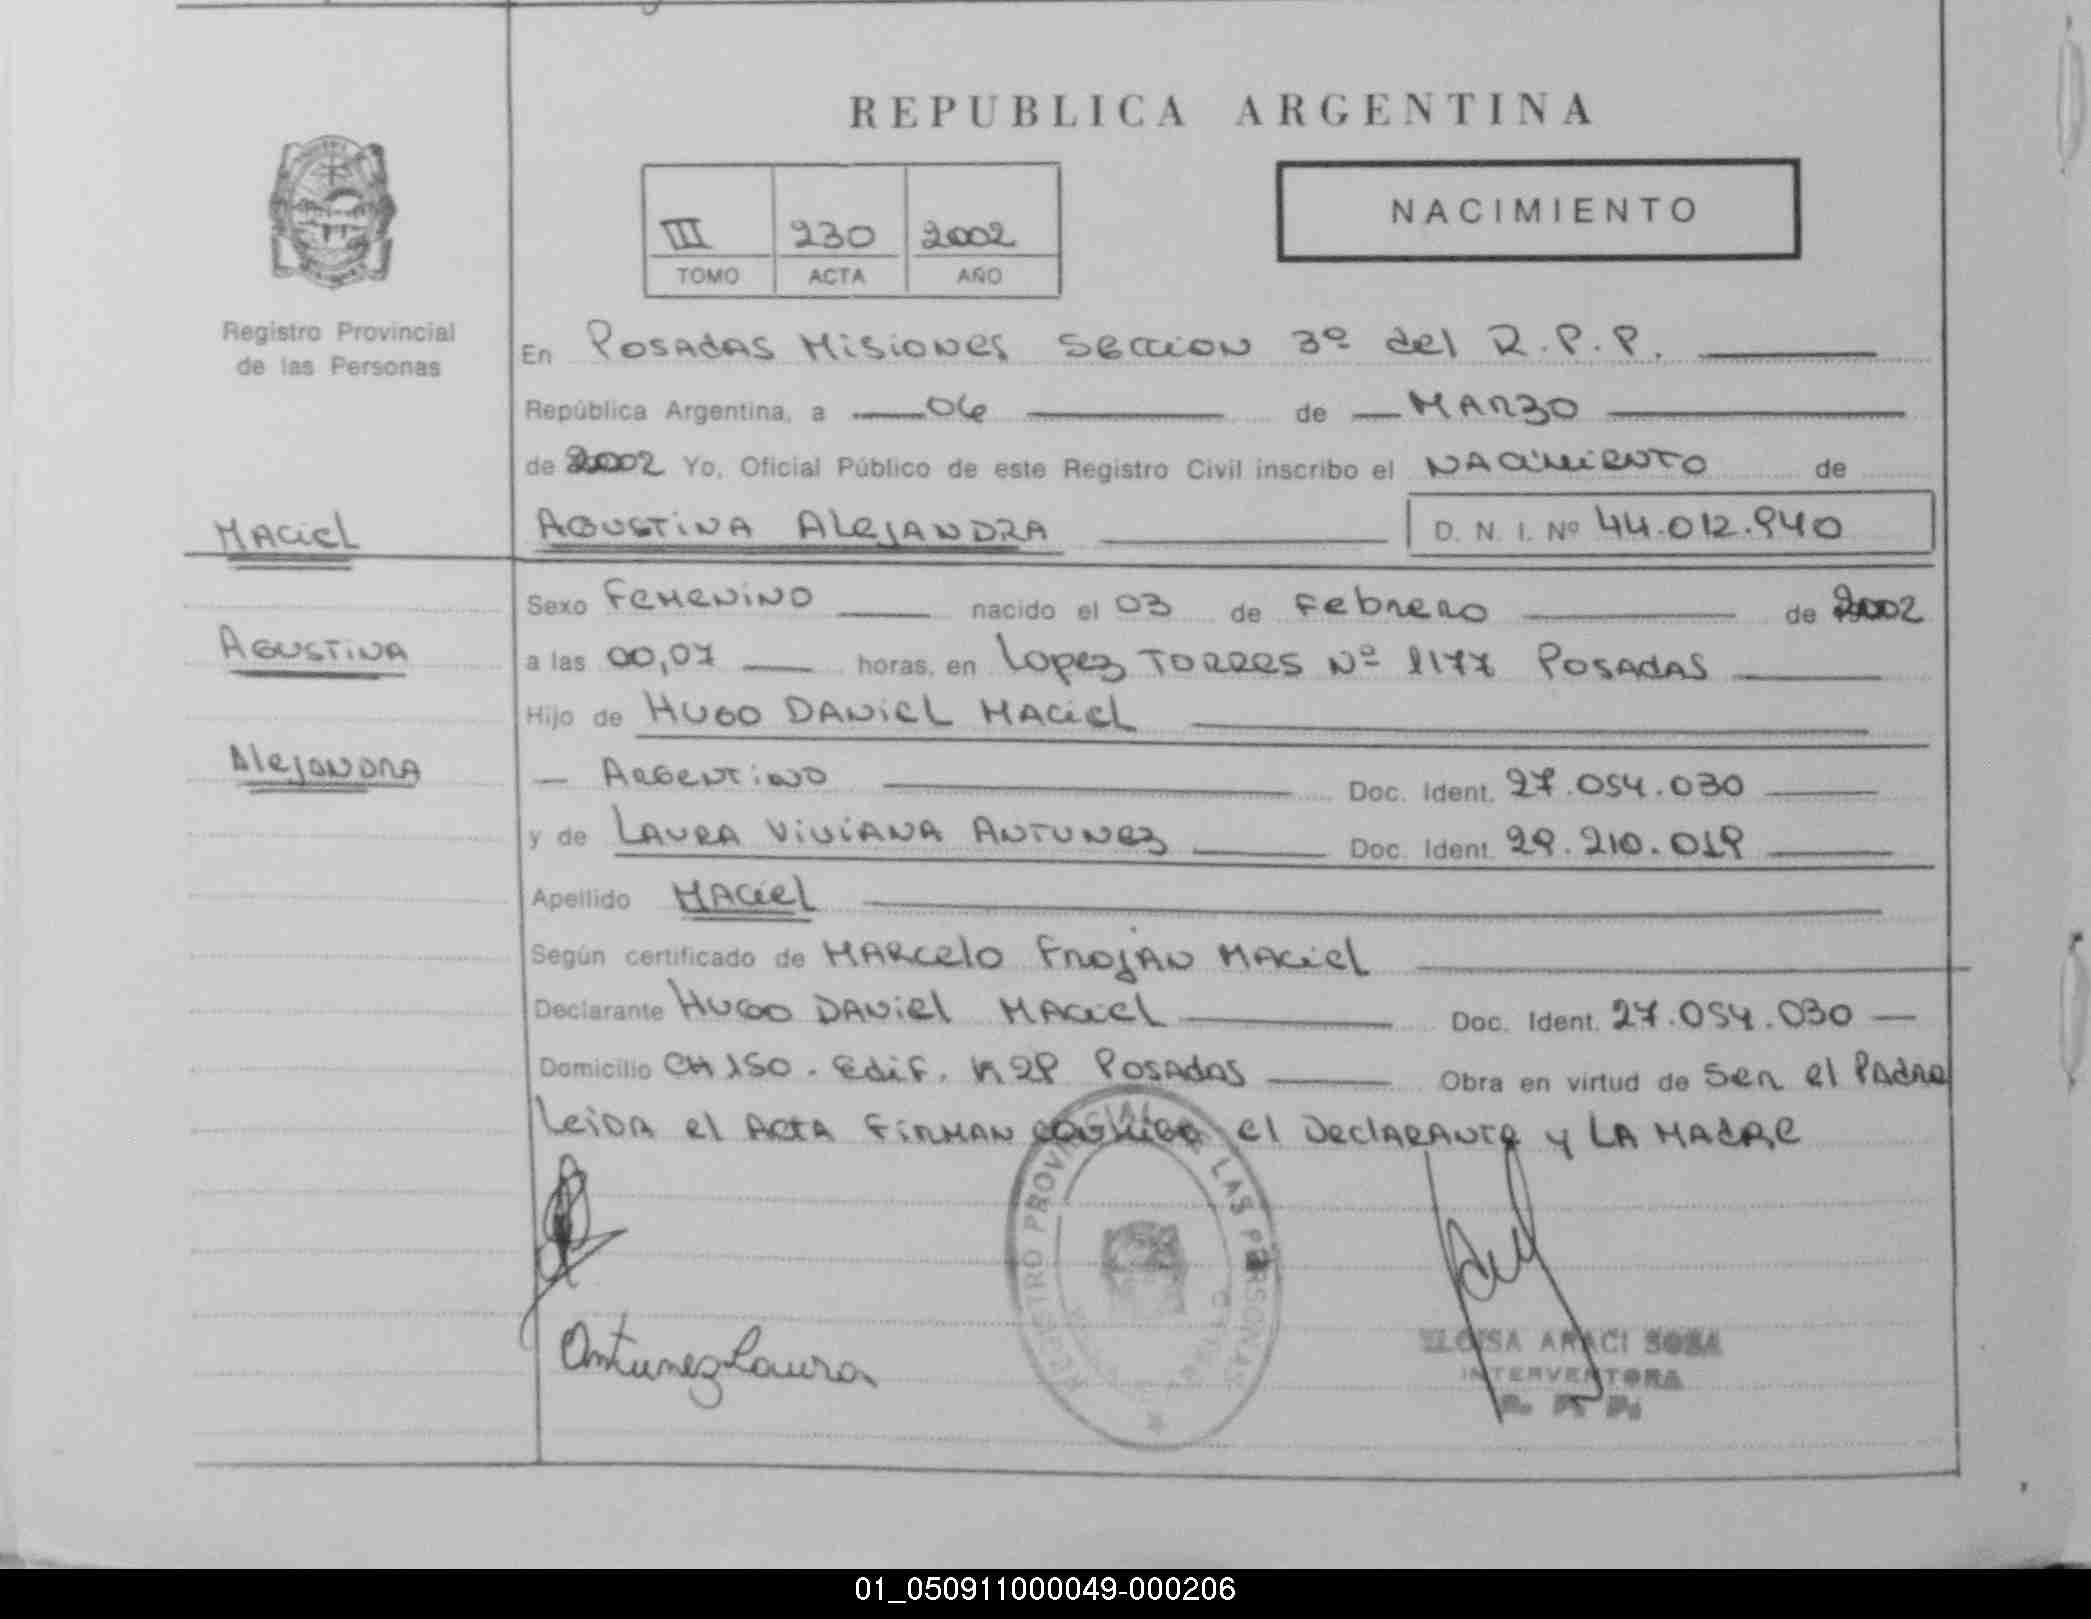 REPUBLICA ARGENTINA
NACIMIENTO
III 230 2002
TOMO ACTA AÑO
Registro Provincial
de las Personas
En POSADAS MISIONES SECCION 3º del R.P.P.
República Argentina, a 06 de MARZO
de 2002 Yo, Oficial Público de este Registro Civil inscribo el NACIMIENTO de
MACIEL
AGUSTINA ALEJANDRA D. N. I. Nº 44.012.940
Sexo FEMENINO nacido el 03 de Febrero de 2002
AGUSTINA
a las 00,07 horas, en Lopez TORRES Nº 1177 POSADAS
Hijo de HUGO DANIEL MACIEL
ALEJANDRA
ARGENTINO Doc. Ident. 27.054.030
y de LAURA VIVIANA ANTUNEZ Doc. Ident. 29.210.019
Apellido MACIEL
Según certificado de MARCELO FROJAN MACIEL
Declarante HUGO DANIEL MACIEL Doc. Ident. 27.054.030
Domicilio CH 150. Edif. K 29 POSADAS Obra en virtud de Ser el PADRE
LEIDA el ACTA FIRMAN CONMIGO el DECLARANTE y LA MADRE
Antunez Laura
REGISTRO PROVINCIAL DE LAS PERSONAS
ELOISA ARACI SOSA
INTERVENTORA
R. P. P.
01_050911000049-000206